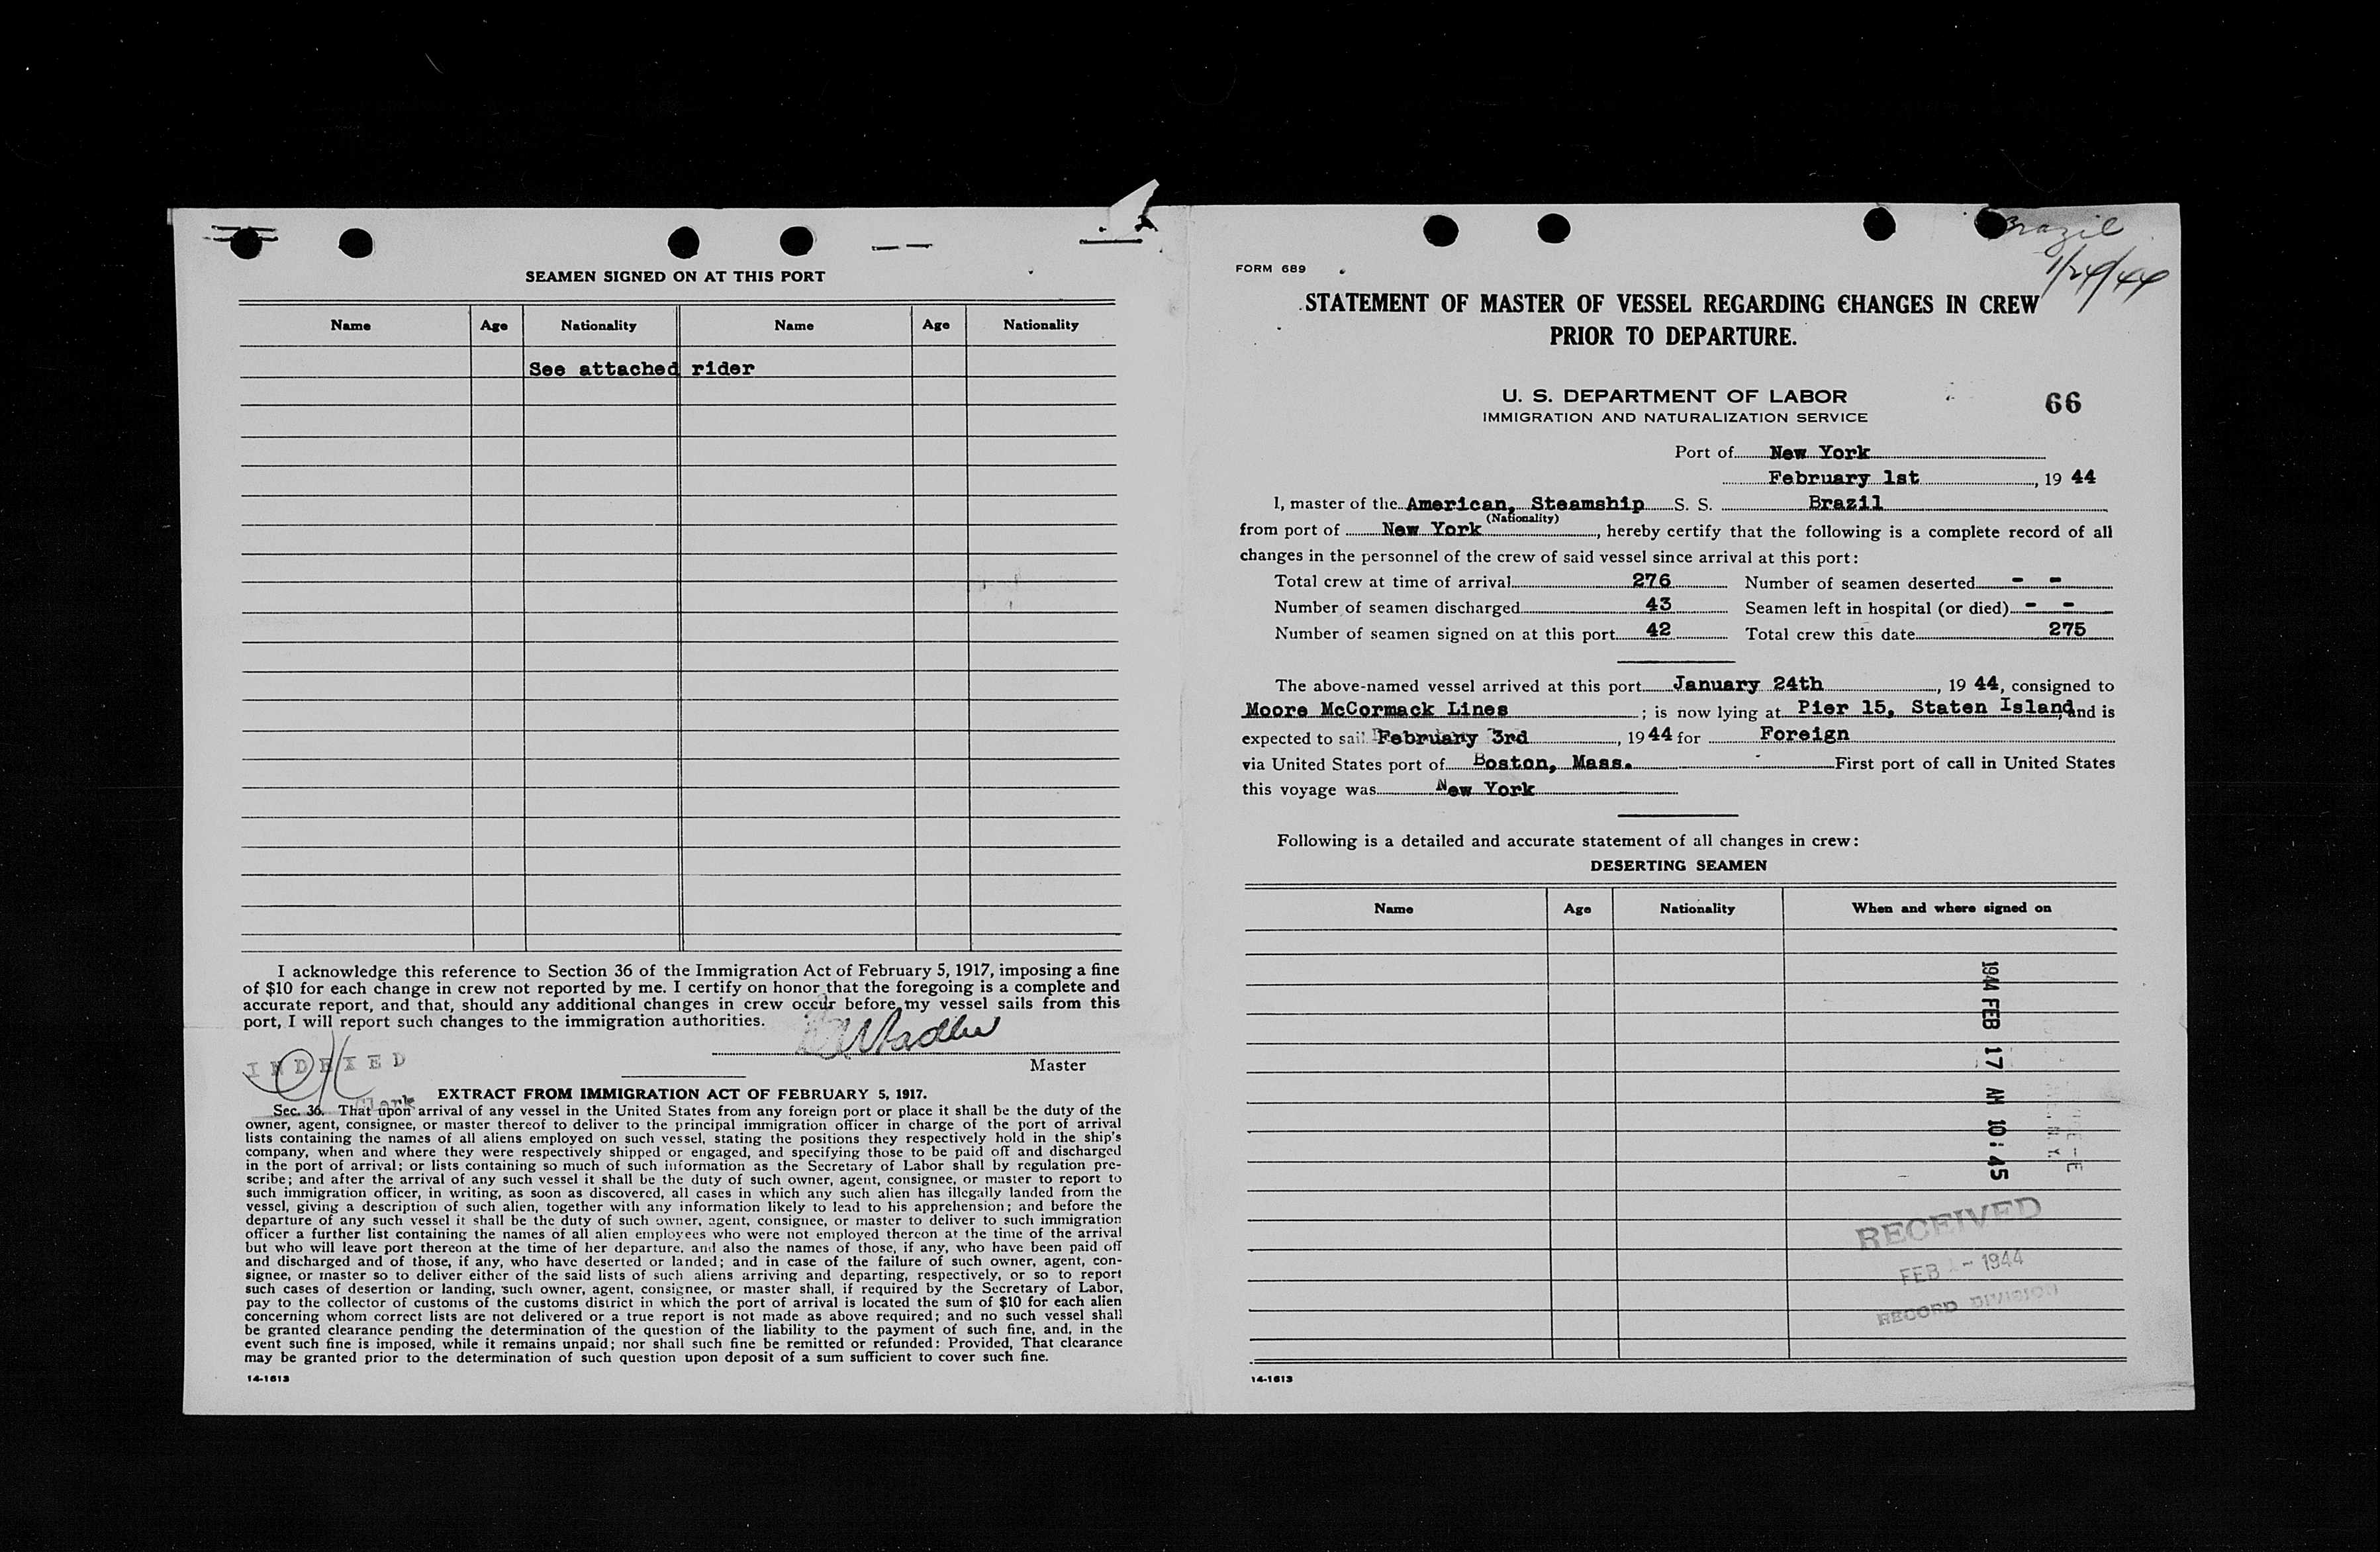 SEAMEN SIGNED ON AT THIS PORT
Name Age Nationality Name Age Nationality
See attached rider
I acknowledge this reference to Section 36 of the Immigration Act of February 5, 1917, imposing a fine
of $10 for each change in crew not reported by me. I certify on honor that the foregoing is a complete and
accurate report, and that, should any additional changes in crew occur before my vessel sails from this
port, I will report such changes to the immigration authorities.
Master
INDEXED
Clerk
EXTRACT FROM IMMIGRATION ACT OF FEBRUARY 5, 1917.
Sec. 36. That upon arrival of any vessel in the United States from any foreign port or place it shall be the duty of the
owner, agent, consignee, or master thereof to deliver to the principal immigration officer in charge of the port of arrival
lists containing the names of all aliens employed on such vessel, stating the positions they respectively hold in the ship's
company, when and where they were respectively shipped or engaged, and specifying those to be paid off and discharged
in the port of arrival; or lists containing so much of such information as the Secretary of Labor shall by regulation pre-
scribe; and after the arrival of any such vessel it shall be the duty of such owner, agent, consignee, or master to report to
such immigration officer, in writing, as soon as discovered, all cases in which any such alien has illegally landed from the
vessel, giving a description of such alien, together with any information likely to lead to his apprehension; and before the
departure of any such vessel it shall be the duty of such owner, agent, consignee, or master to deliver to such immigration
officer a further list containing the names of all alien employees who were not employed thereon at the time of the arrival
but who will leave port thereon at the time of her departure, and also the names of those, if any, who have been paid off
and discharged and of those, if any, who have deserted or landed; and in case of the failure of such owner, agent, con-
signee, or master so to deliver either of the said lists of such aliens arriving and departing, respectively, or so to report
such cases of desertion or landing, such owner, agent, consignee, or master shall, if required by the Secretary of Labor,
pay to the collector of customs of the customs district in which the port of arrival is located the sum of $10 for each alien
concerning whom correct lists are not delivered or a true report is not made as above required; and no such vessel shall
be granted clearance pending the determination of the question of the liability to the payment of such fine, and, in the
event such fine is imposed, while it remains unpaid; nor shall such fine be remitted or refunded: Provided, That clearance
may be granted prior to the determination of such question upon deposit of a sum sufficient to cover such fine.
14-1613
Brazil
1/24/44
FORM 689
STATEMENT OF MASTER OF VESSEL REGARDING CHANGES IN CREW
PRIOR TO DEPARTURE.
U. S. DEPARTMENT OF LABOR
IMMIGRATION AND NATURALIZATION SERVICE
66
Port of New York
February 1st, 19 44
I, master of the American, Steamship S. S. Brazil
(Nationality)
from port of New York, hereby certify that the following is a complete record of all
changes in the personnel of the crew of said vessel since arrival at this port:
Total crew at time of arrival 276 Number of seamen deserted - -
Number of seamen discharged 43 Seamen left in hospital (or died) - -
Number of seamen signed on at this port 42 Total crew this date 275
The above-named vessel arrived at this port January 24th, 19 44, consigned to
Moore McCormack Lines; is now lying at Pier 15, Staten Island, and is
expected to sail February 3rd, 19 44 for Foreign
via United States port of Boston, Mass. First port of call in United States
this voyage was New York
Following is a detailed and accurate statement of all changes in crew:
DESERTING SEAMEN
Name Age Nationality When and where signed on
1944 FEB 17 AM 10:45
RECEIVED
FEB 1 - 1944
RECORD DIVISION
14-1613